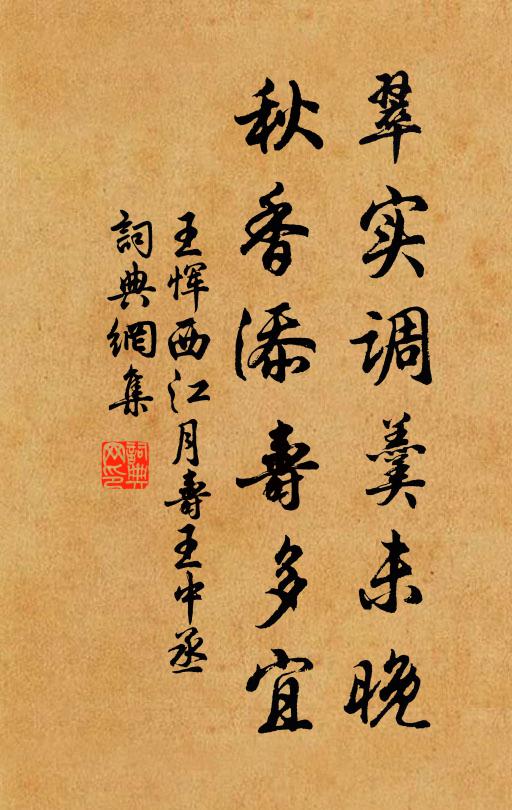 翠实调羹未晚
秋香添寿多宜
王恽西江月寿王中丞
詞典網集
詞典网印